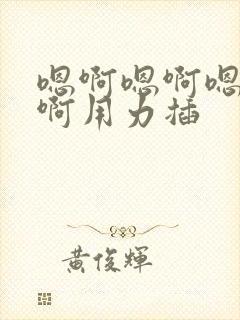 嗯啊嗯啊嗯
啊用力插
黄俊輝